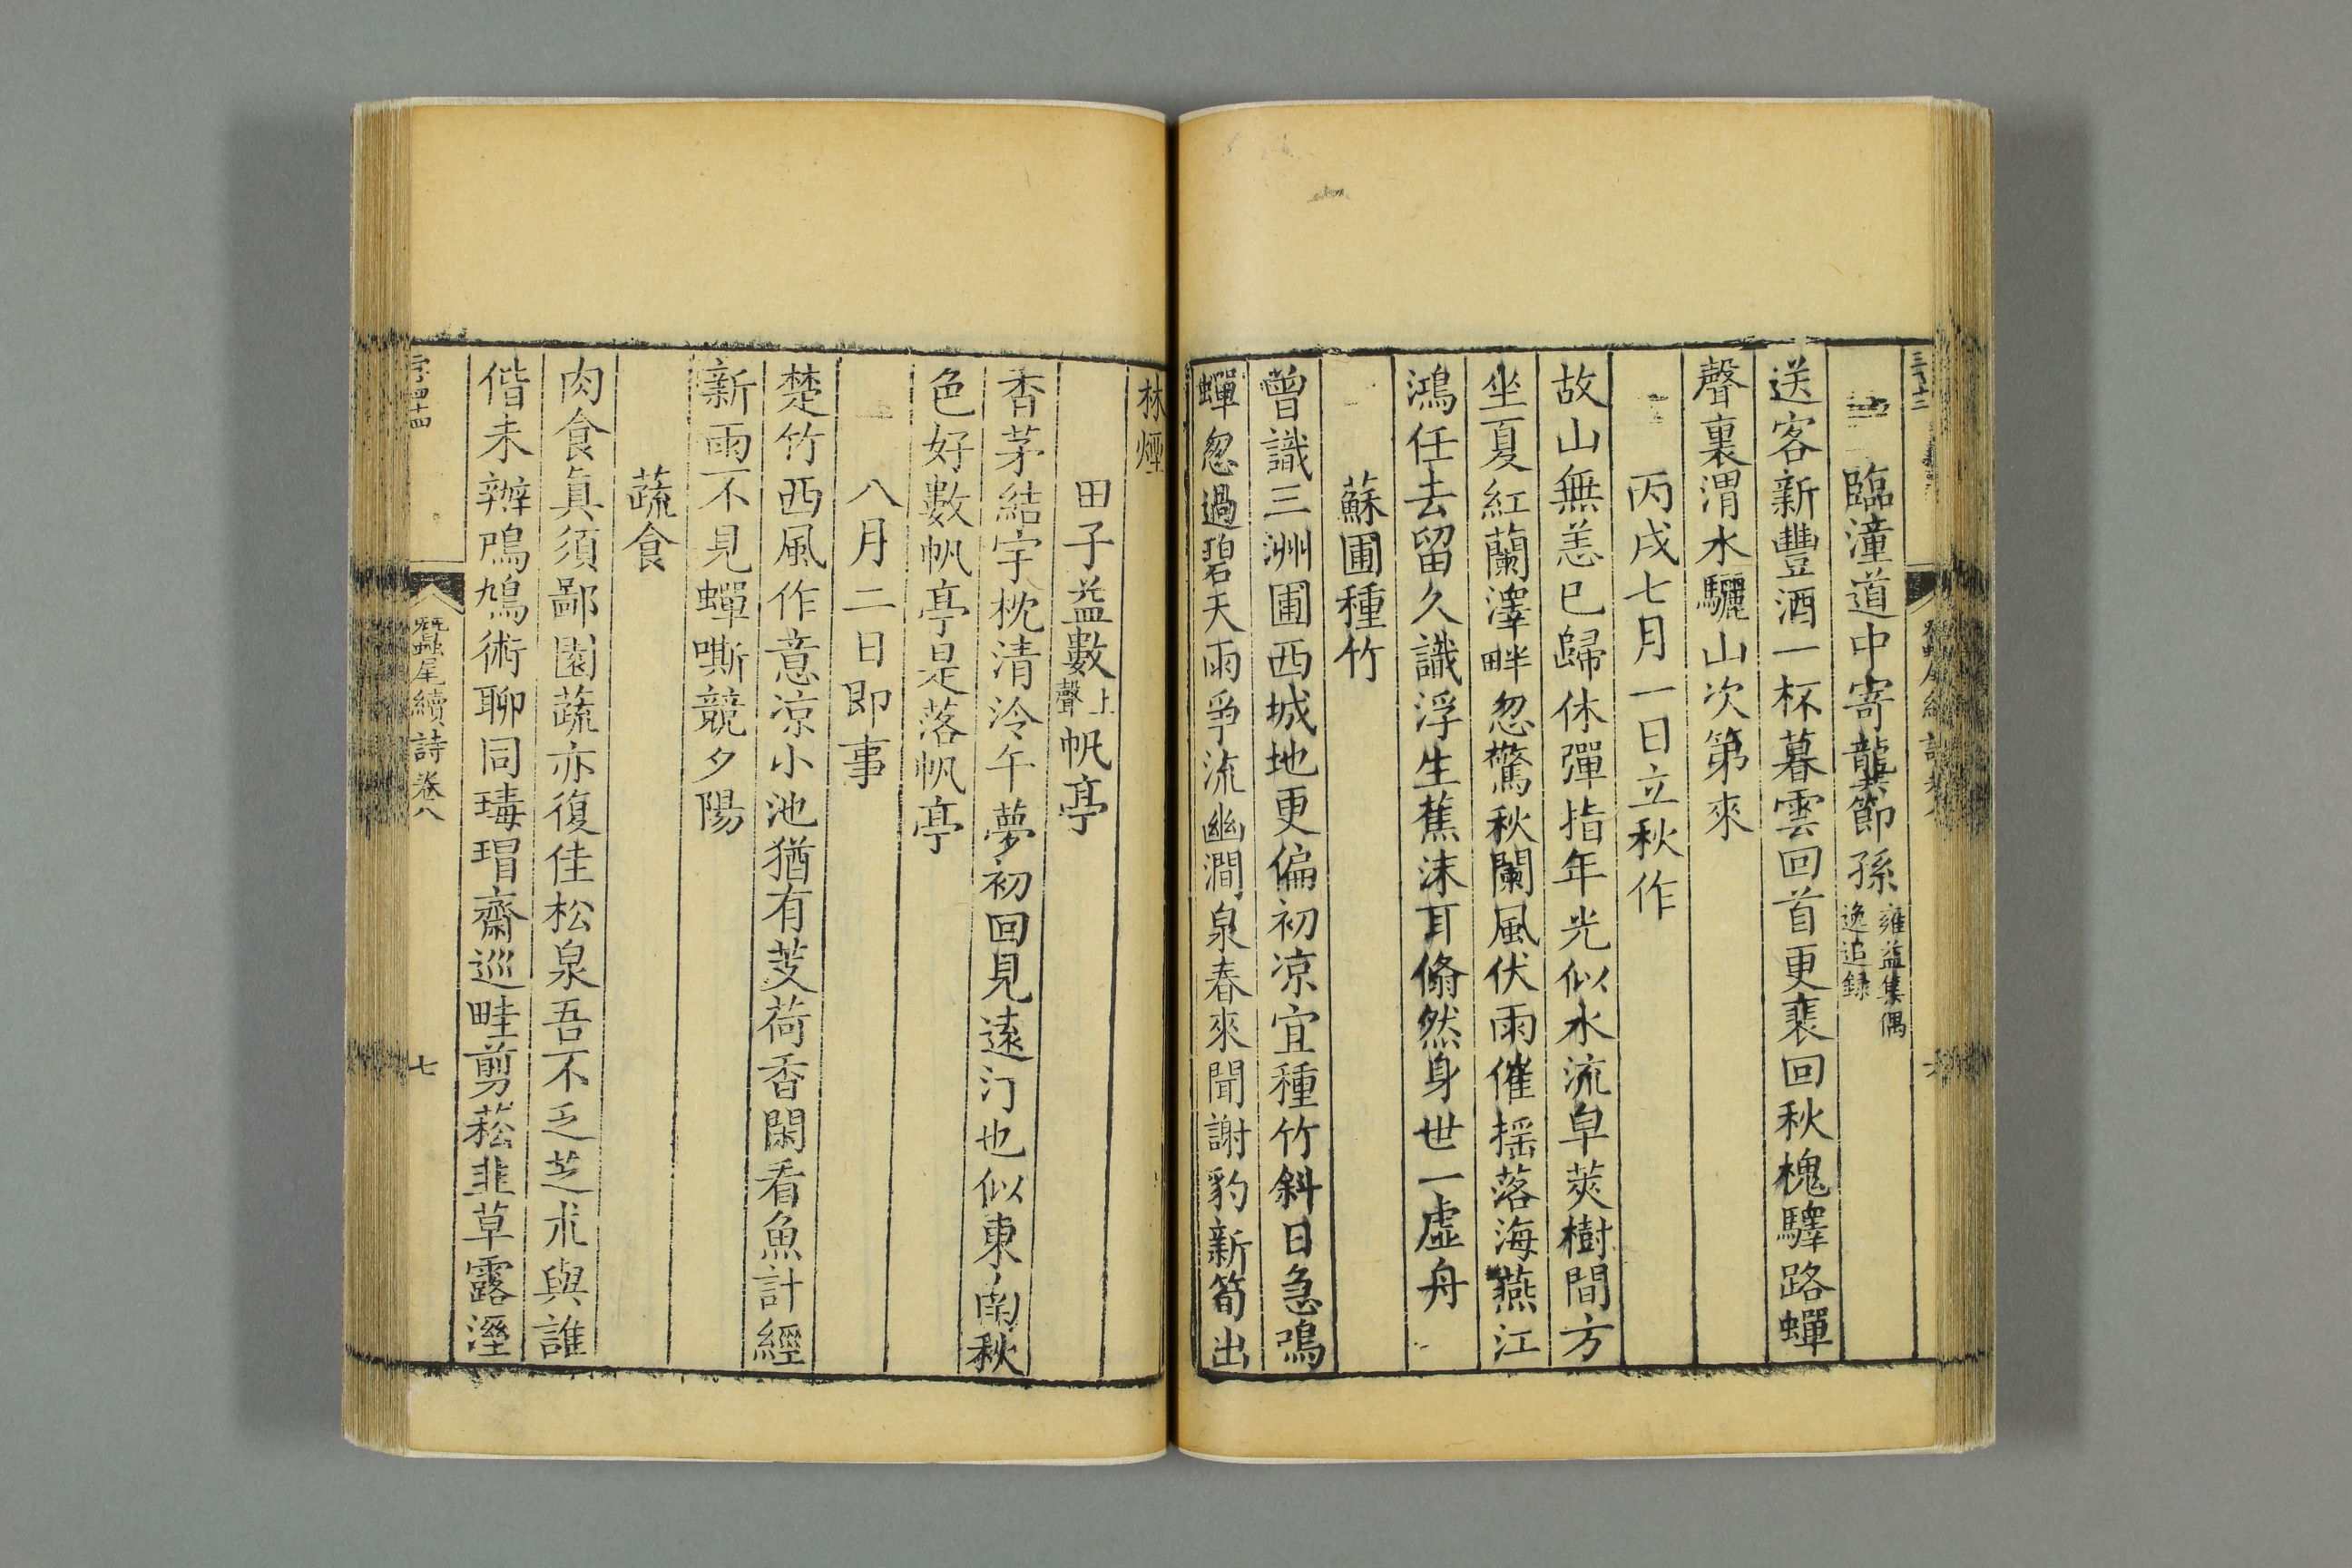 臨潼道中寄龔節孫雍益集偶逸追錄
送客新豐酒一杯暮雲回首更裴回秋槐驛路蟬
聲裏渭水驪山次第來
丙戌七月一日立秋作
故山無恙已歸休彈指年光似水流皁莢樹間方
坐夏紅蘭澤畔忽驚秋闌風伏雨催搖落海燕江
鴻任去留久識浮生蕉沫耳翛然身世一虛舟
蘇圃種竹
曾識三洲圃西城地更偏初凉宜種竹斜日急鳴
蟬忽過碧天雨爭流幽澗泉春來聞謝豹新筍出
林煙
田子益數上聲帆亭
香茅結宇枕清泠午夢初回見遠汀也似東南秋
色好數帆亭是落帆亭
八月二日即事
楚竹西風作意凉小池猶有芰荷香閑看魚計經
新雨不見蟬嘶競夕陽
蔬食
肉食眞須鄙園蔬亦復佳松泉吾不乏芝朮與誰
偕未辦鴈鳩術聊同瑇瑁齋巡畦剪菘韭草露溼
字四十四
蠶尾續詩卷八
七